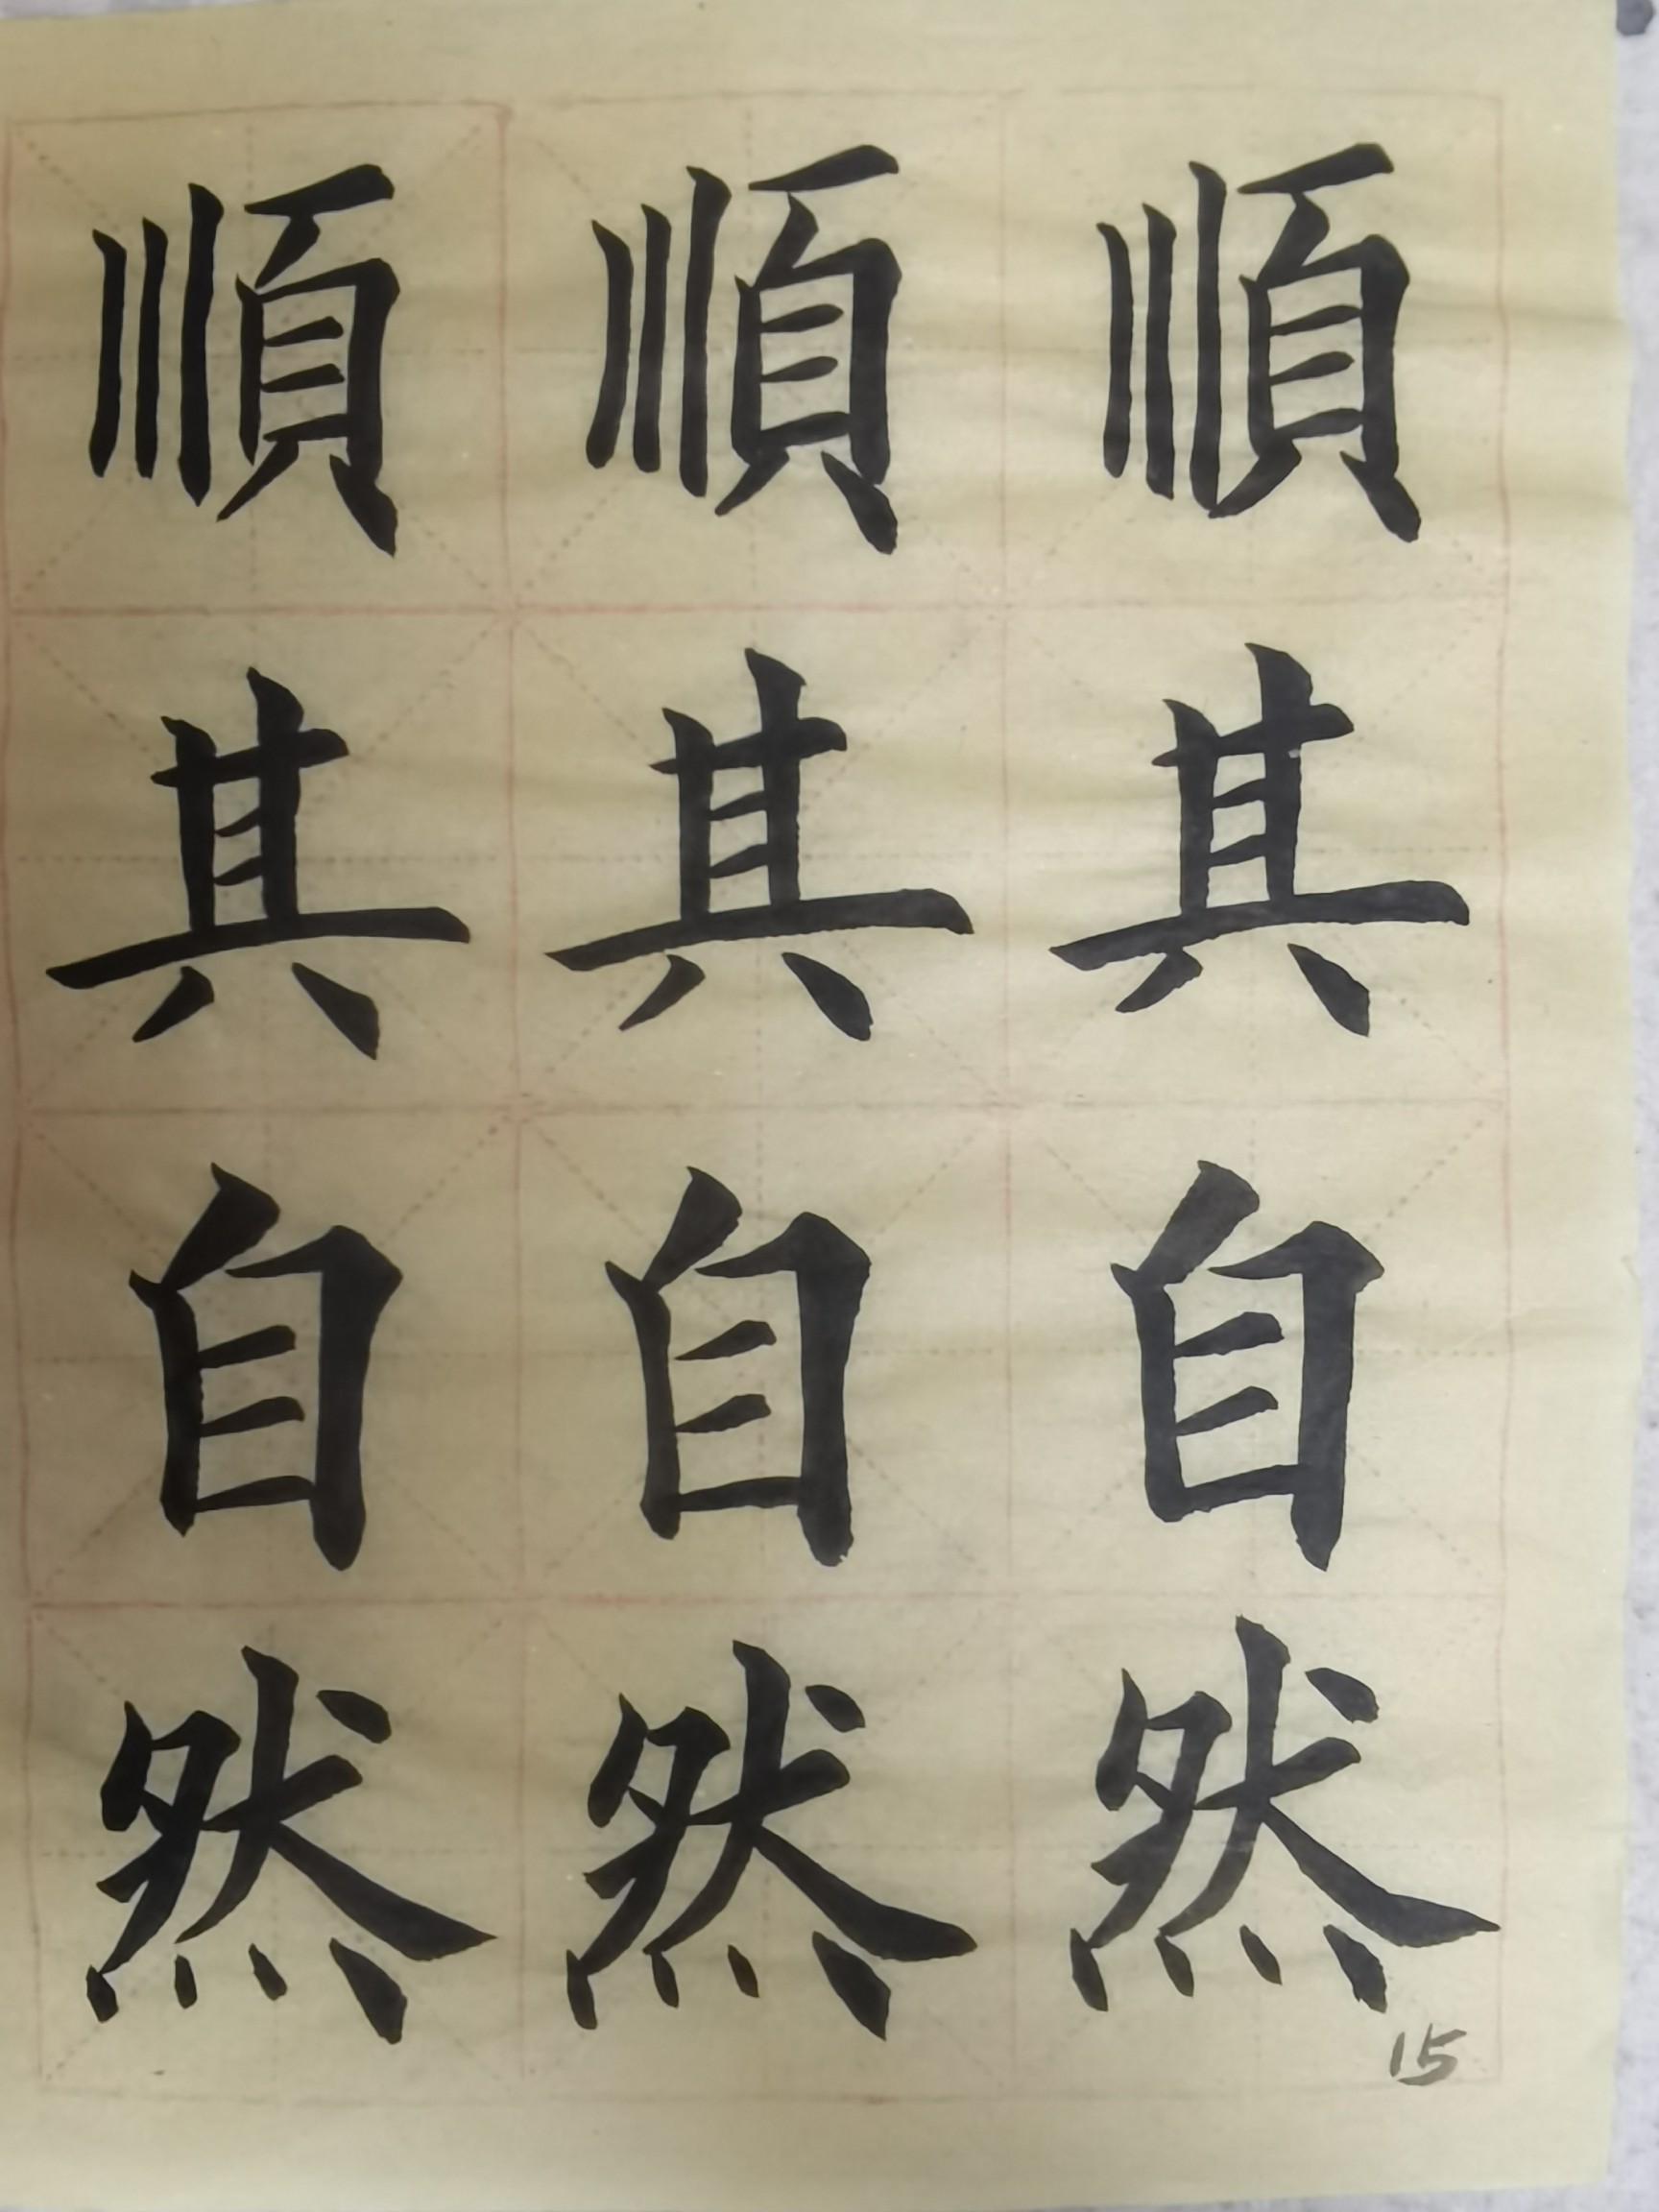 順其自然
順其自然
順其自然
15